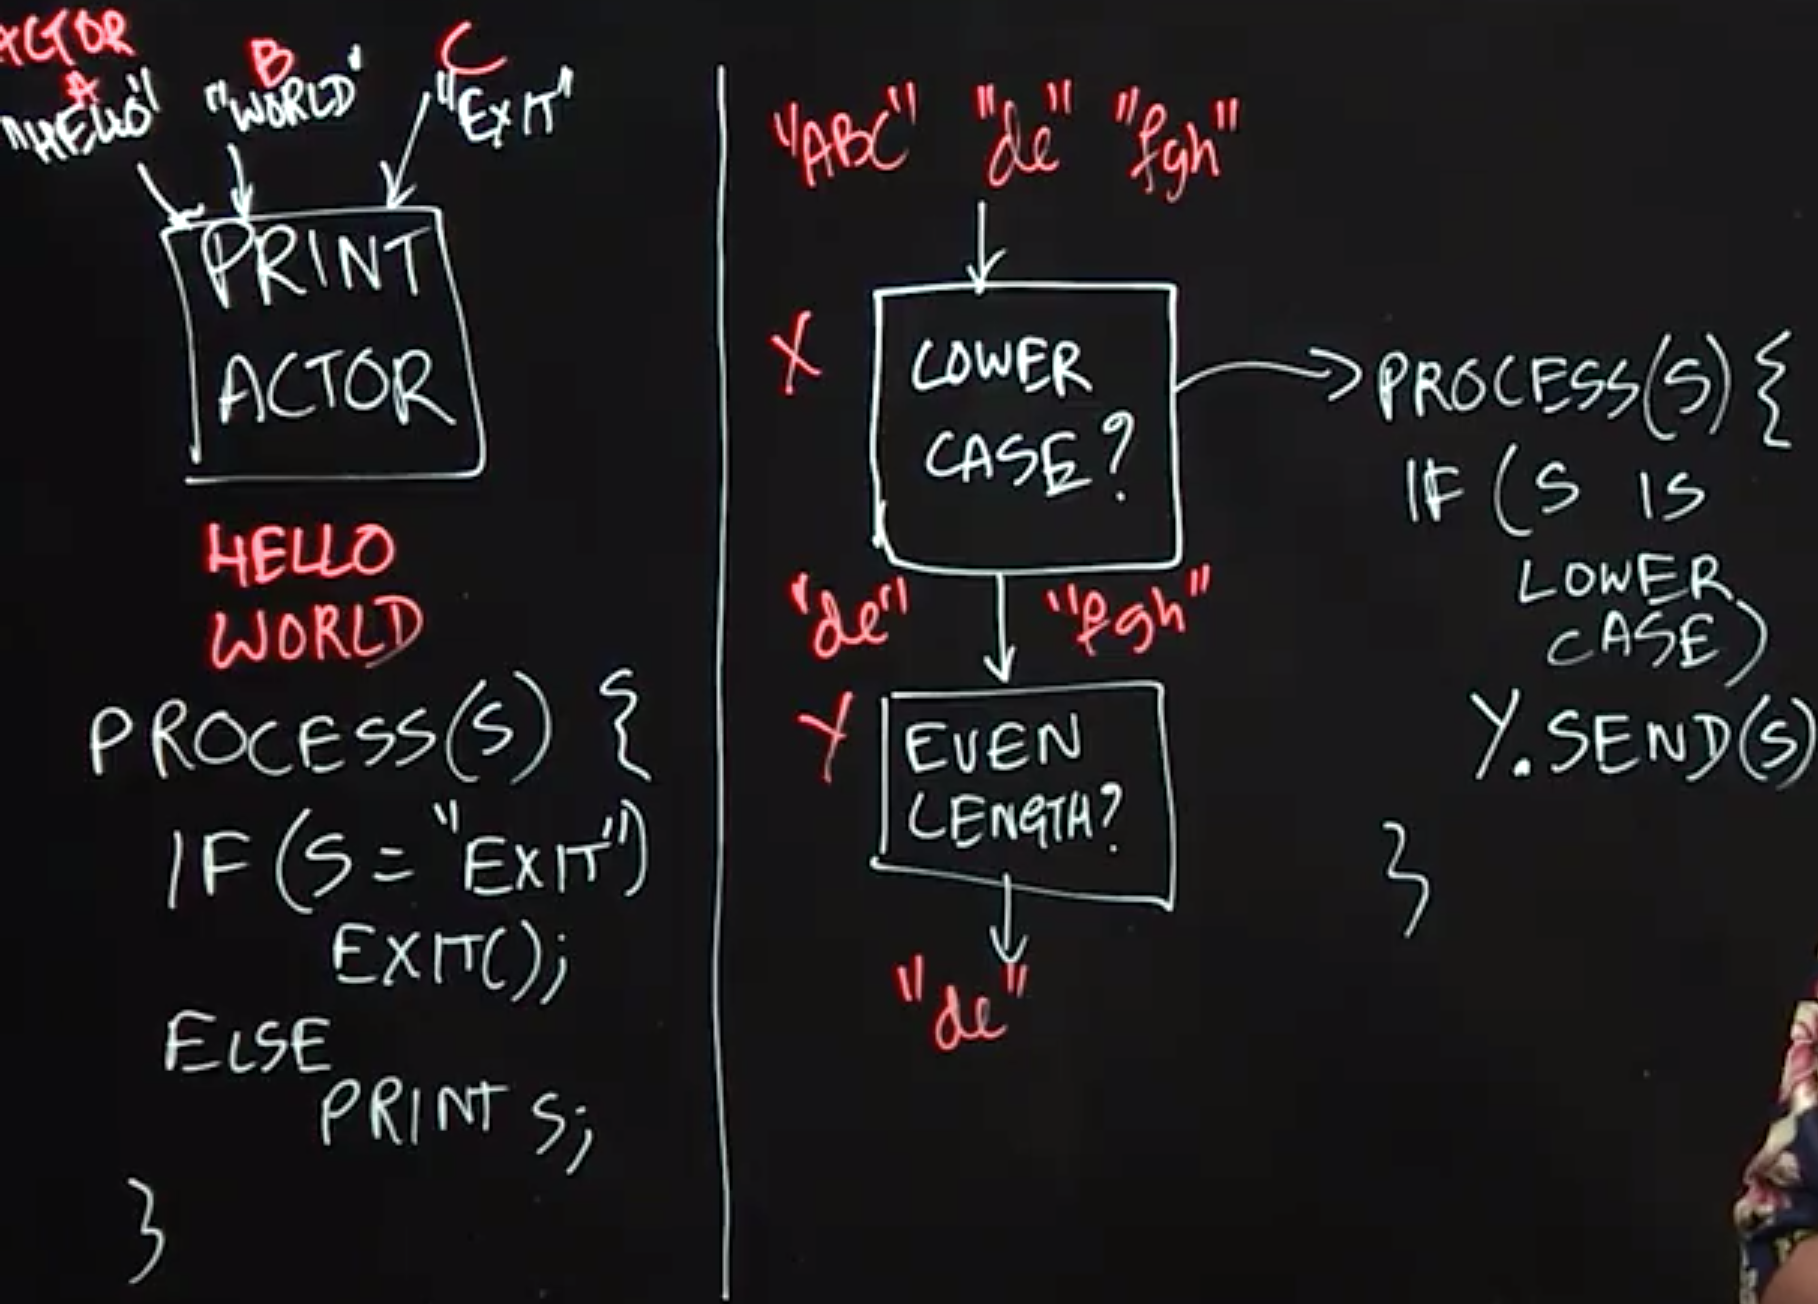 ACTOR
A B C
"HELLO" "WORLD" "EXIT"
PRINT
ACTOR
HELLO
WORLD
PROCESS(S) {
IF (S = "EXIT")
EXIT();
ELSE
PRINT S;
}
"ABC" "de" "fgh"
X
LOWER
CASE?
"de" "fgh"
Y
EVEN
LENGTH?
"de"
PROCESS(S) {
IF (S IS
LOWER
CASE)
Y.SEND(S)
}